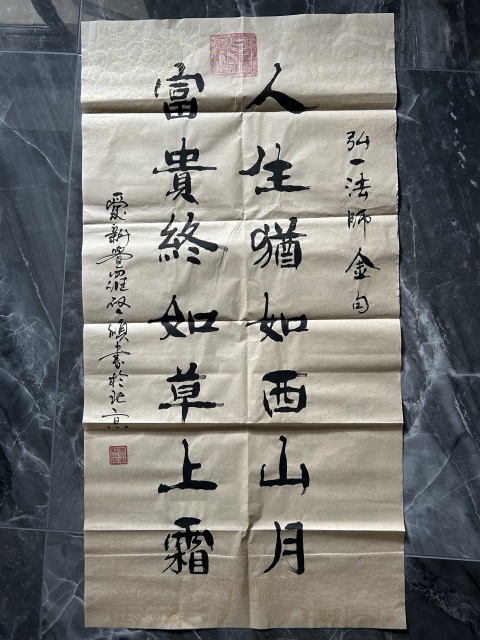 弘一法師金句
人生猶如西山月
富貴終如草上霜
愛新覺羅書於北京